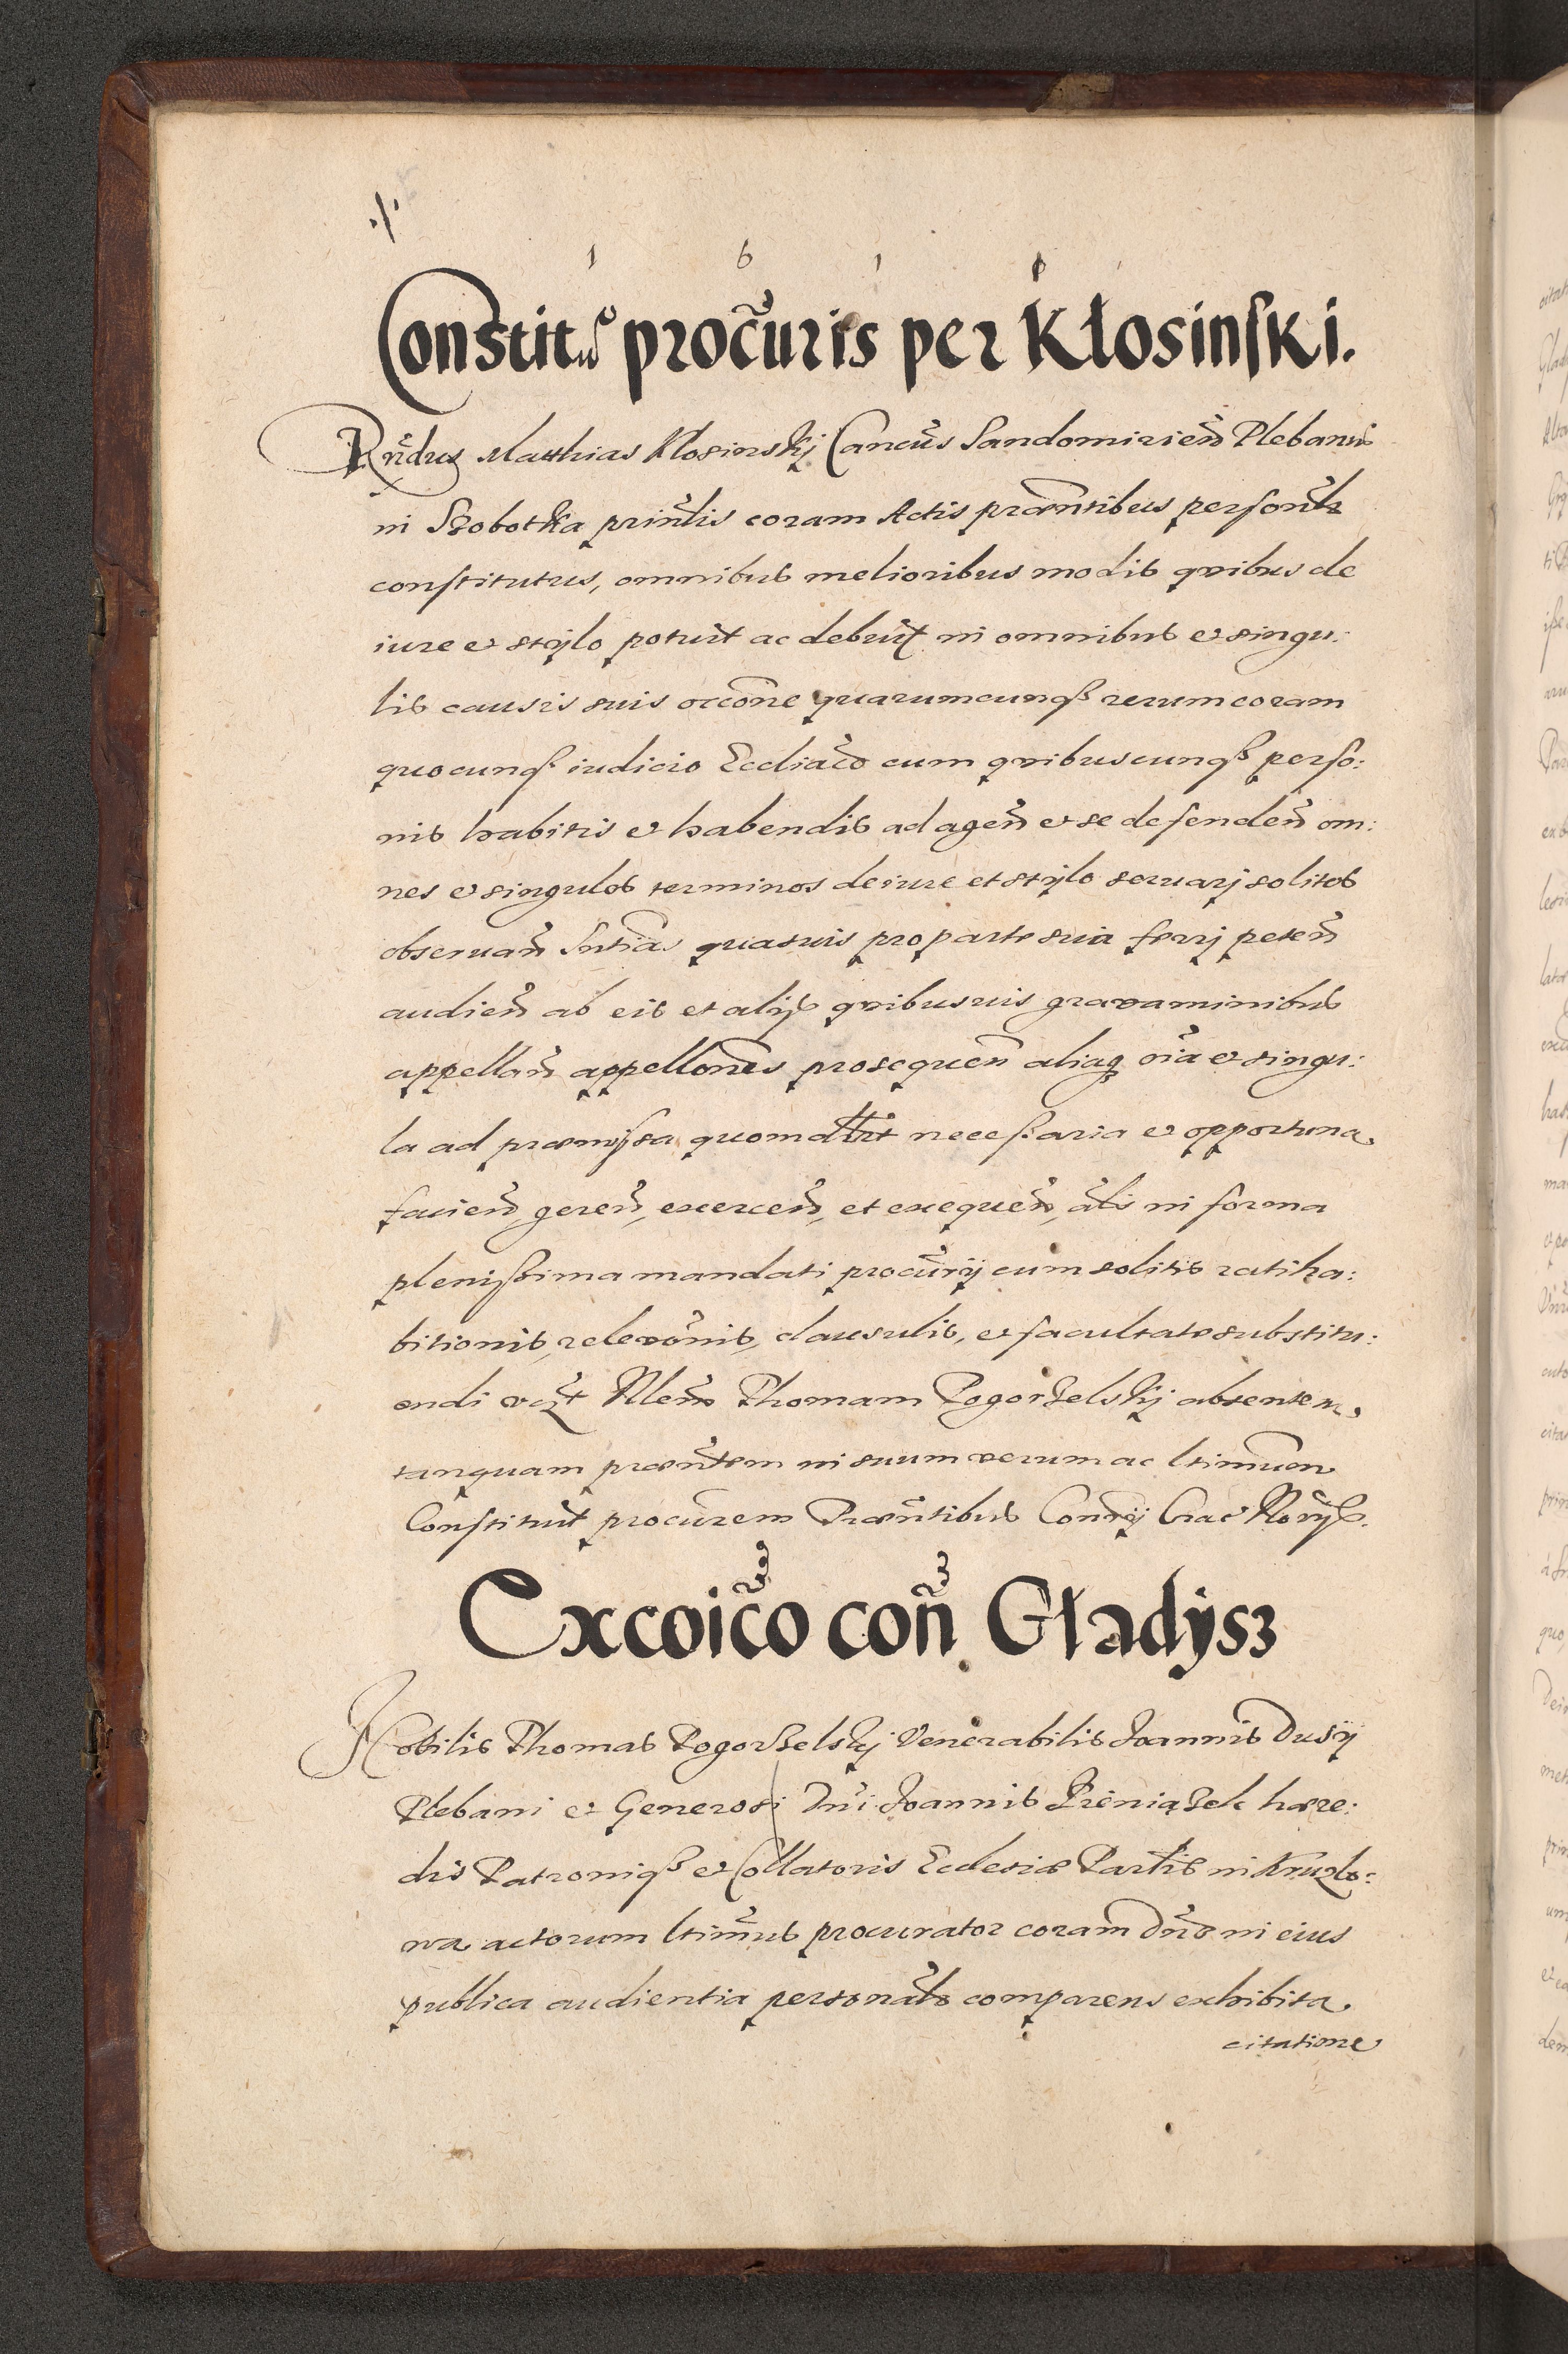 1 6 1 1
Constitᵒ procuris per Kłosinski.
Rndus Matthias Klosinskj Cancus Sandomirien Plebanus
in Szobotka prinlis coram Actis præntibus personlr
constitutus, omnibus melioribus modis quibus de
iure et stÿlo potuit ac debuit in omnibus et singu:
lis causis suis occone quarumcunqß rerum coram
quocunqß iudicio Eccliaco cum quibuscunqß perso:
nis habitis et habendis ad agen et se defenden om:
nes et singulos terminos de iure et stÿlo seruarj solitos
obseruan Sntias quasuis pro parte sua ferrj peten
audien ab eis et alijs quibusuis grauaminibus
appellan appellones prosequen aliaqз oia et singu:
la ad præmissa quomodlibet necessaria et opportuna
facien, geren, exercen, et exequen, als in forma
plenissima mandati procurij cum solitis ratiha:
bitionis, releuonis, clausulis, et facultate substitu:
endi vczt Nlem Thomam Pogorzelskij absentem,
tanquam præntem in suum verum ac ltimum
Constituit procurem Præntibus Conrij Crac Norijs.
Excoico con Gładÿsз
Nobilis Thomas Pogorzelskj Venerabilis Joannis Dusÿ
Plebani et Generosi Dni Joannis Pieniązek hære:
dis Patroniqß et Collatoris Ecclesiæ Partis in Kruzlo:
wa actorum ltimus procurator coram Dno in eius
publica audientia personalr comparens exhibita
citatione